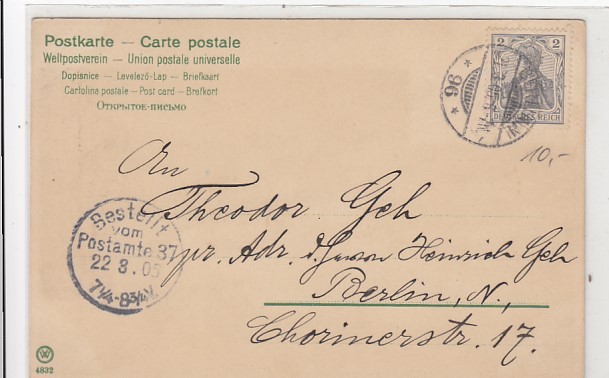 Postkarte — Carte postale
Weltpostverein — Union postale universelle
Dopisnice — Levelező-Lap — Briefkaart
Cartolina postale — Post card — Brefkort
Открытое письмо
2 2
DEUTSCHES REICH
* 96 *
10,-
An
Theodor Geh
pr. Adr. Heinrich Geh
Berlin, N.,
Chorinerstr. 17.
Bestellt
vom
Postamte 37
22 3. 05
7¼-8¾V.
W
4832